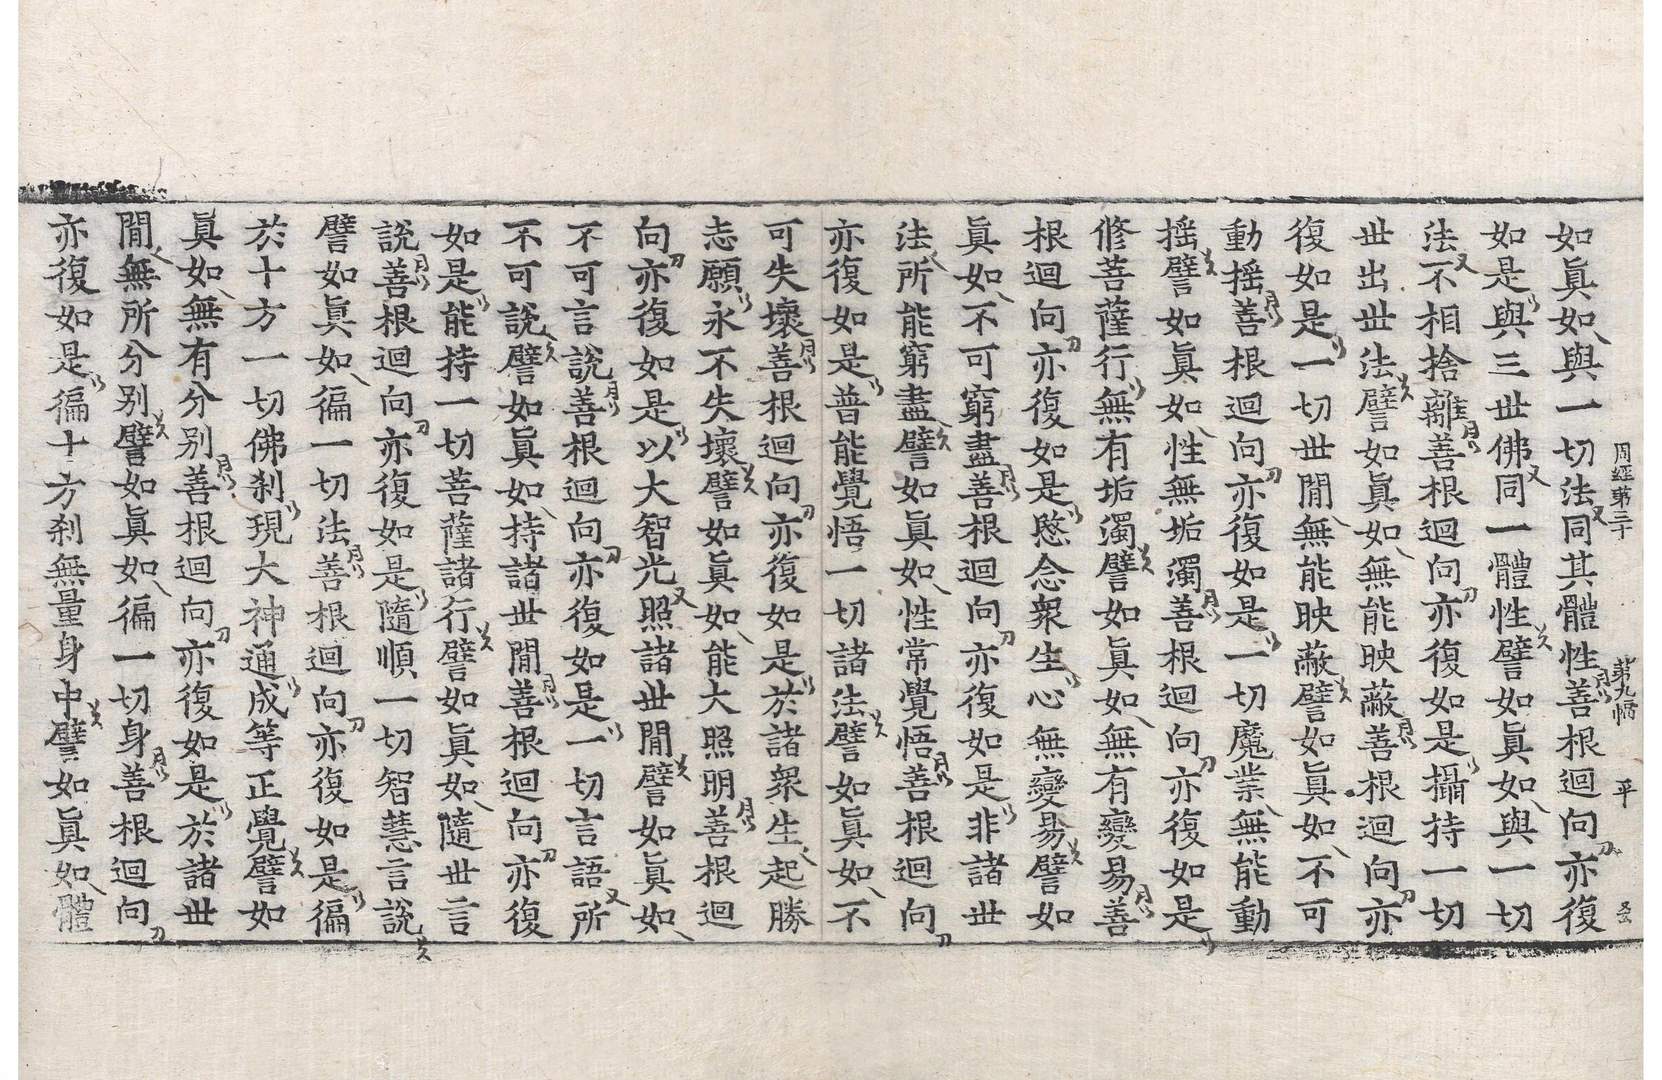 周經第三十
第九幅
平
如眞如與一切法同其體性善根迴向亦復
如是與三世佛同一體性譬如眞如與一切
法不相捨離善根迴向亦復如是攝持一切
世出世法譬如眞如無能映蔽善根迴向亦
復如是一切世間無能映蔽譬如眞如不可
動搖善根迴向亦復如是一切魔業無能動
搖譬如眞如性無垢濁善根迴向亦復如是
修菩薩行無有垢濁譬如眞如無有變易善
根迴向亦復如是愍念衆生心無變易譬如
眞如不可窮盡善根迴向亦復如是非諸世
法所能窮盡譬如眞如性常覺悟善根迴向
亦復如是普能覺悟一切諸法譬如眞如不
可失壞善根迴向亦復如是於諸衆生起勝
志願永不失壞譬如眞如能大照明善根迴
向亦復如是以大智光照諸世間譬如眞如
不可言說善根迴向亦復如是一切言語所
不可說譬如眞如持諸世間善根迴向亦復
如是能持一切菩薩諸行譬如眞如隨世言
說善根迴向亦復如是隨順一切智慧言說
譬如眞如徧一切法善根迴向亦復如是徧
於十方一切佛刹現大神通成等正覺譬如
眞如無有分別善根迴向亦復如是於諸世
間無所分別譬如眞如徧一切身善根迴向
亦復如是徧十方刹無量身中譬如眞如體